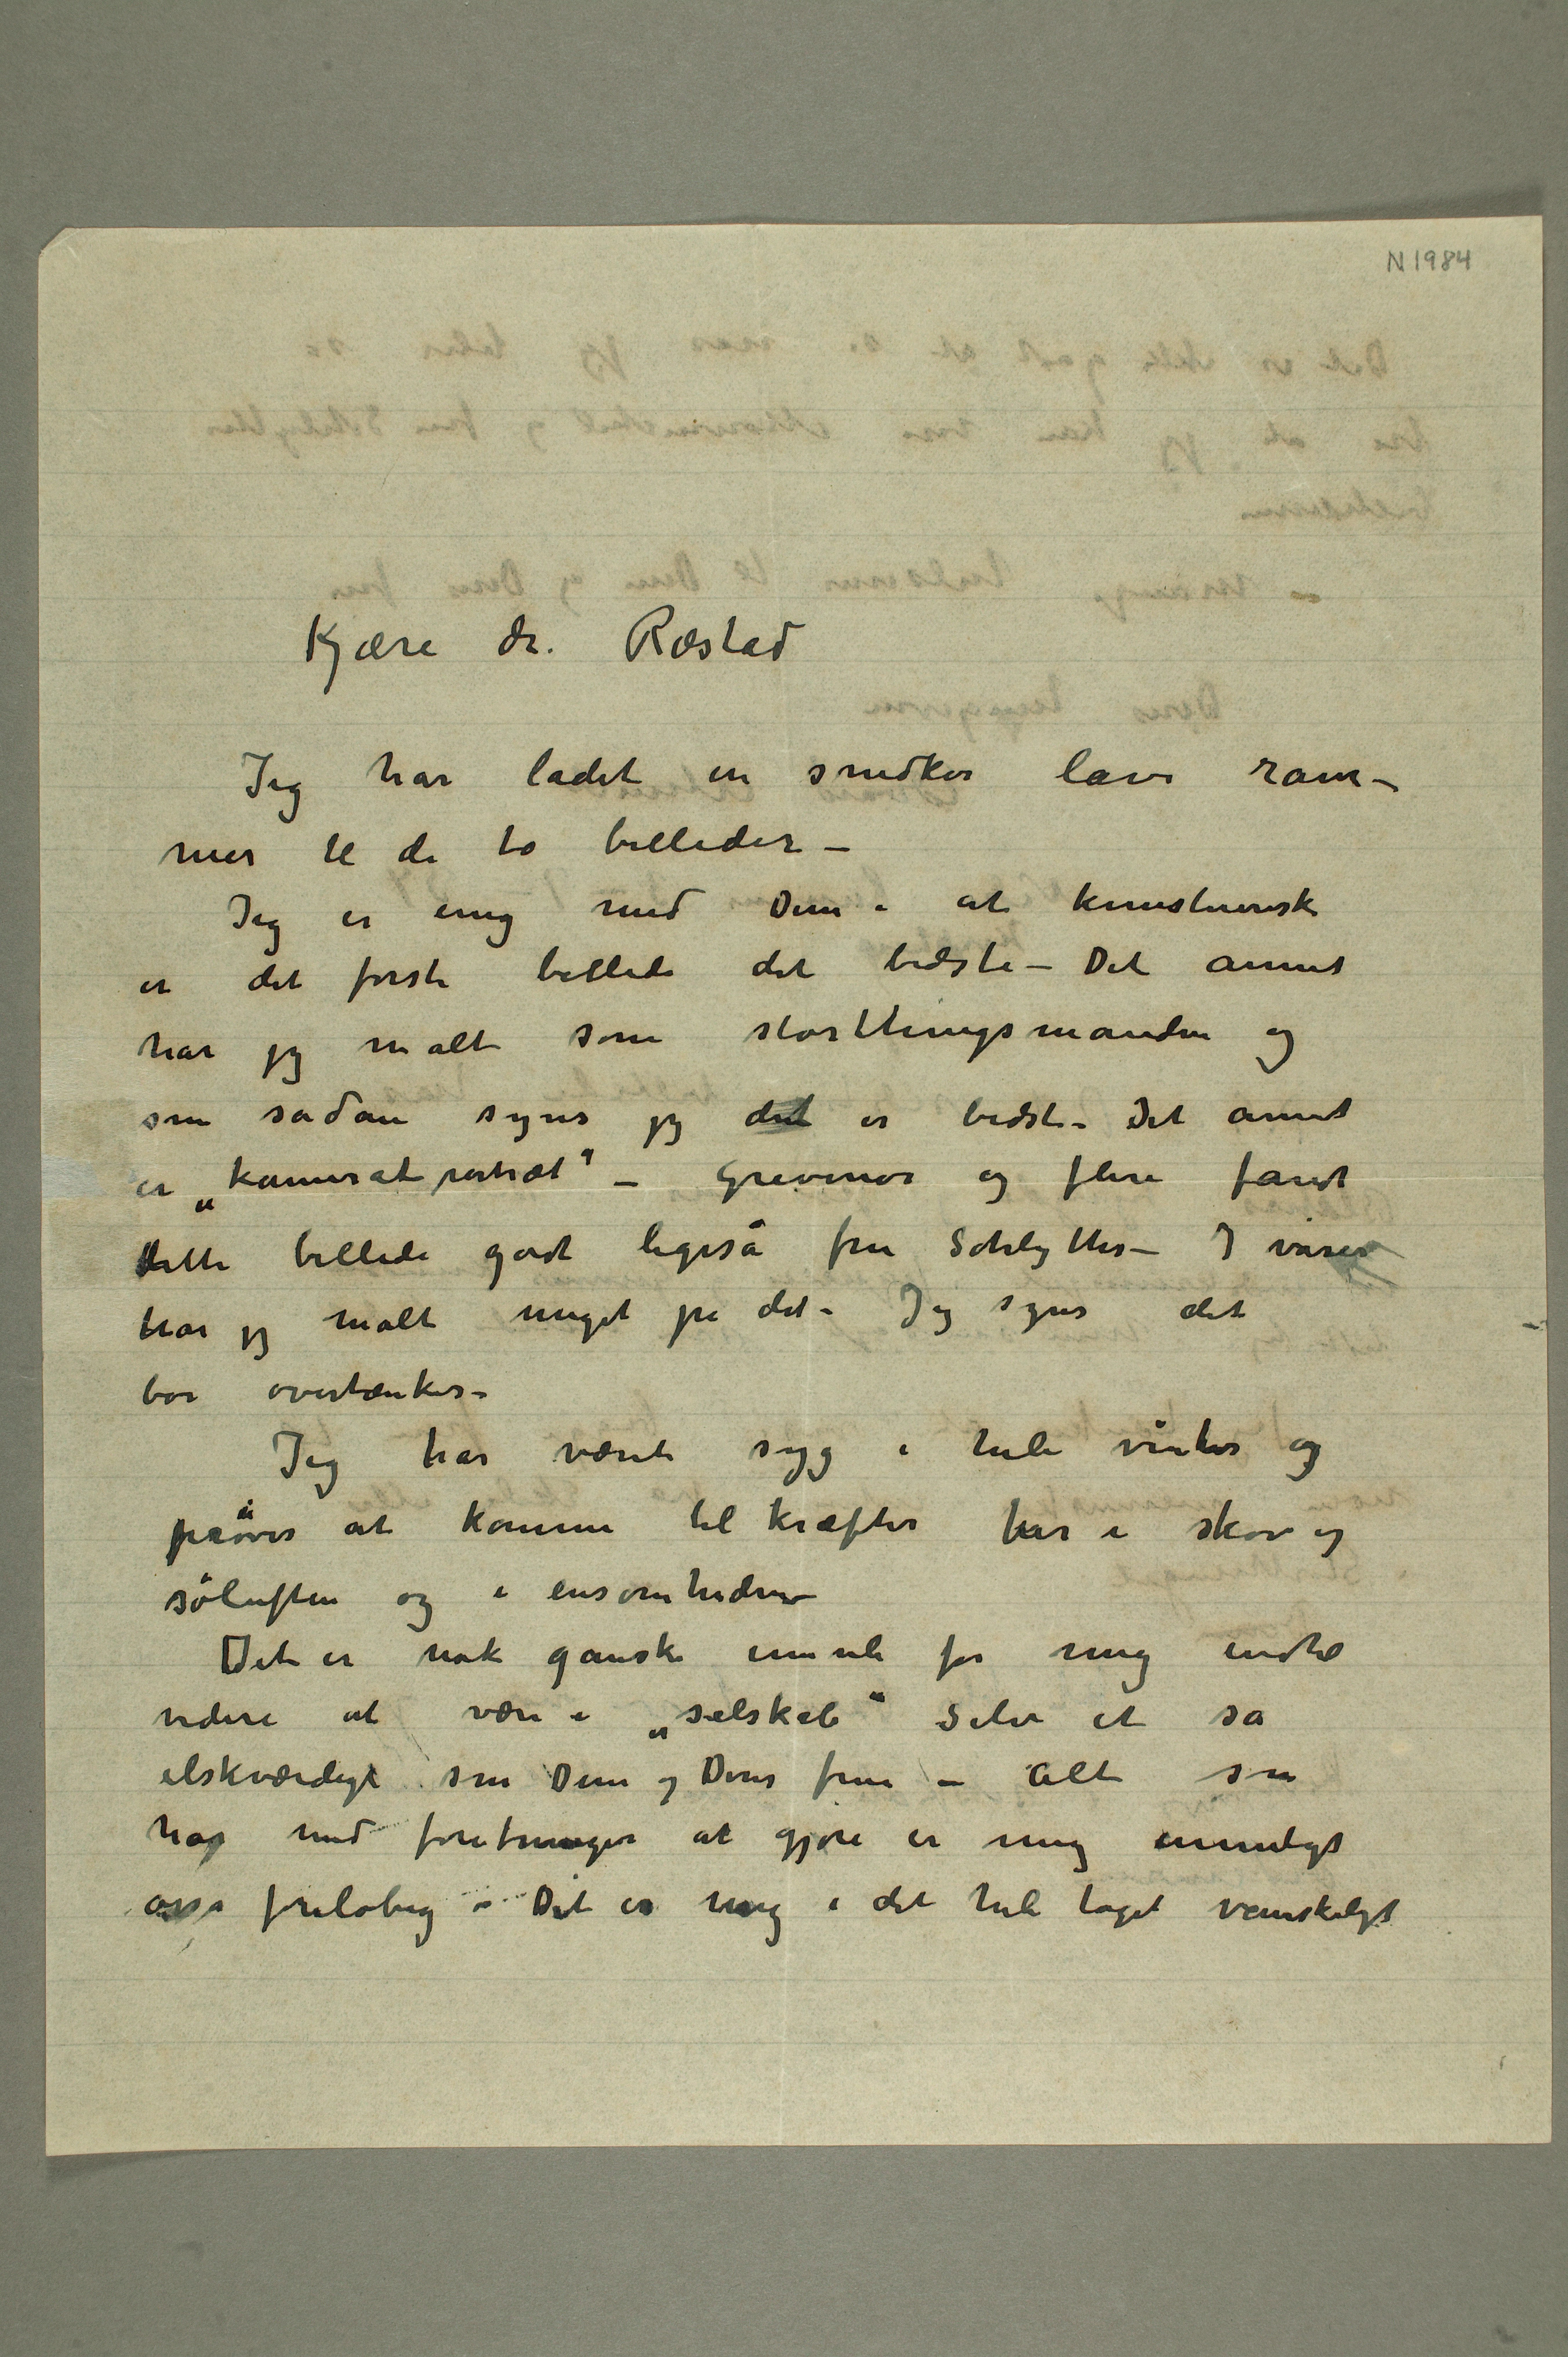 N 1984
Kjære dr. Ræstad
Jeg har ladet en snedker lave ram-
mer til de to billeder –
Jeg er enig med Dem i at kunstnerisk
er det første billede det bedste – Det annet
har jeg malt som storthingsmanden og
som sådan synes jeg det er bedst – Det annet
er „kamerat portræt“ – Grevenor og flere fandt
dette billede godt ligeså fru Schlytter – I vinter
har jeg malt meget på det – Jeg synes det
bør overtænkes –
Jeg har været syg i hele vinter og
prøver at komme til kræfter her i skov og
søluften og i ensomheden –
Det er nok ganske umulig for mig indtil
videre at være i „selskab“ Selv et så
elskværdigt som Dem og Deres frue – Alt som
har med foretninger at gjøre er mig umuligt
også foreløbig – Det er mig i det hele taget vanskeligt